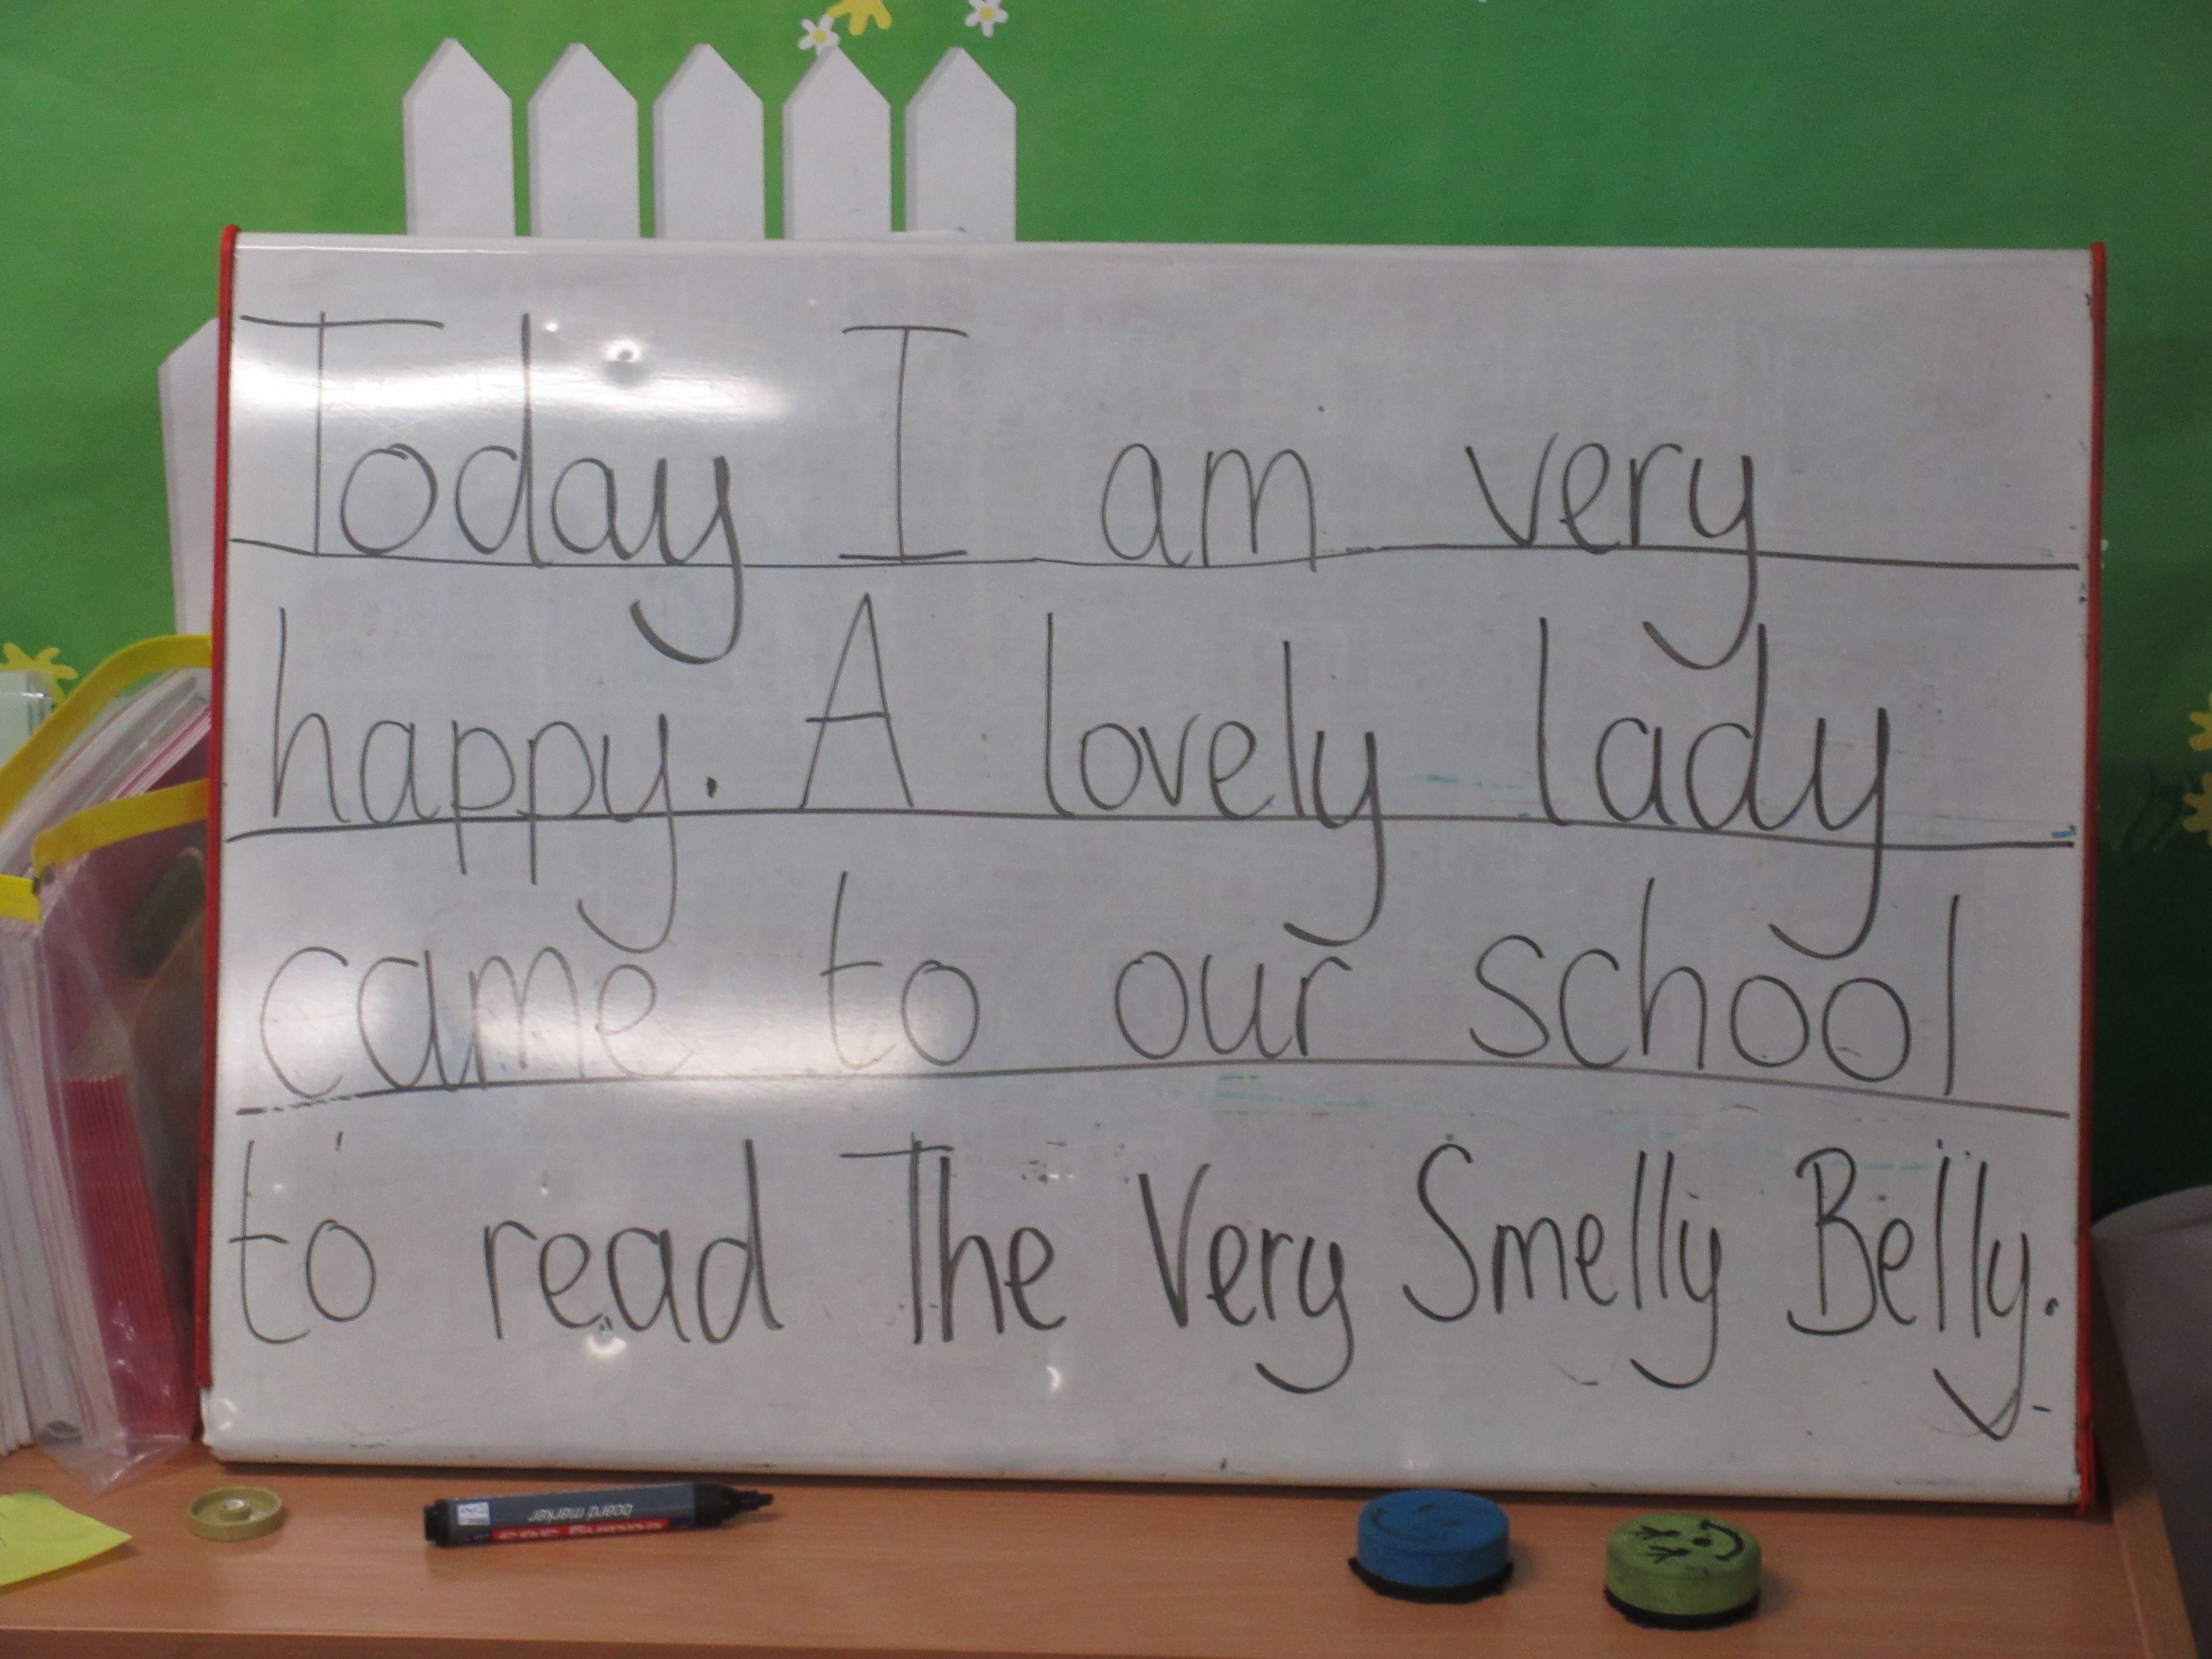 Today I am very
happy. A lovely lady
came to our school
to read The Very Smelly Belly.
board marker